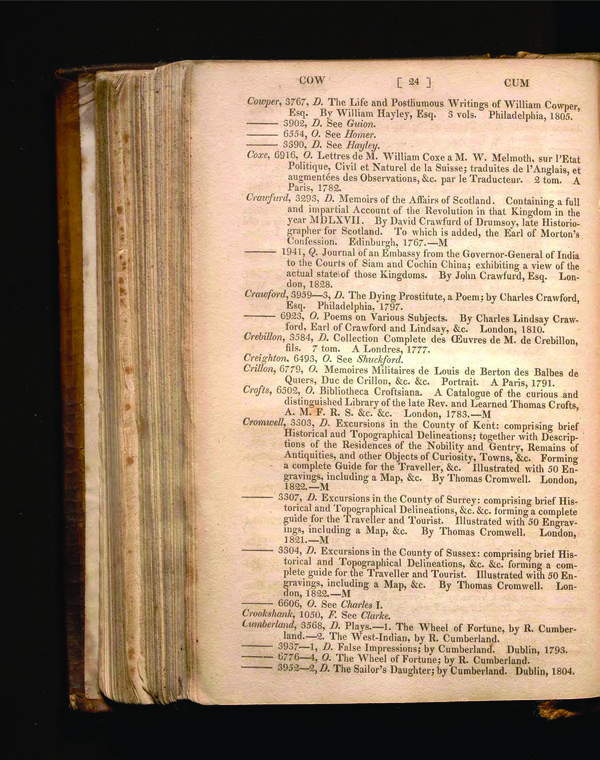 COW [ 24 ] CUM
Cowper, 3767, D. The Life and Posthumous Writings of William Cowper,
Esq. By William Hayley, Esq. 3 vols. Philadelphia, 1805.
—— 3902, D. See Guion.
—— 6554, O. See Homer.
—— 3390, D. See Hayley.
Coxe, 6916, O. Lettres de M. William Coxe a M. W. Melmoth, sur l'Etat
Politique, Civil et Naturel de la Suisse; traduites de l'Anglais, et
augmentées des Observations, &c. par le Traducteur. 2 tom. A
Paris, 1782.
Crawfurd, 3293, D. Memoirs of the Affairs of Scotland. Containing a full
and impartial Account of the Revolution in that Kingdom in the
year MDLXVII. By David Crawfurd of Drumsoy, late Historio-
grapher for Scotland. To which is added, the Earl of Morton's
Confession. Edinburgh, 1767.—M
—— 1941, Q. Journal of an Embassy from the Governor-General of India
to the Courts of Siam and Cochin China; exhibiting a view of the
actual state of those Kingdoms. By John Crawfurd, Esq. Lon-
don, 1828.
Crawford, 3959—3, D. The Dying Prostitute, a Poem; by Charles Crawford,
Esq. Philadelphia, 1797.
—— 6923, O. Poems on Various Subjects. By Charles Lindsay Craw-
ford, Earl of Crawford and Lindsay, &c. London, 1810.
Crebillon, 3584, D. Collection Complete des Œuvres de M. de Crebillon,
fils. 7 tom. A Londres, 1777.
Creighton, 6493, O. See Shuckford.
Crillon, 6779, O. Memoires Militaires de Louis de Berton des Balbes de
Quiers, Duc de Crillon, &c. &c. Portrait. A Paris, 1791.
Crofts, 6502, O. Bibliotheca Croftsiana. A Catalogue of the curious and
distinguished Library of the late Rev. and Learned Thomas Crofts,
A. M. F. R. S. &c. &c. London, 1783.—M
Cromwell, 3303, D. Excursions in the County of Kent: comprising brief
Historical and Topographical Delineations; together with Descrip-
tions of the Residences of the Nobility and Gentry, Remains of
Antiquities, and other Objects of Curiosity, Towns, &c. Forming
a complete Guide for the Traveller, &c. Illustrated with 50 En-
gravings, including a Map, &c. By Thomas Cromwell. London,
1822.—M
—— 3307, D. Excursions in the County of Surrey: comprising brief His-
torical and Topographical Delineations, &c. &c. forming a complete
guide for the Traveller and Tourist. Illustrated with 50 Engrav-
ings, including a Map, &c. By Thomas Cromwell. London,
1821.—M
—— 3304, D. Excursions in the County of Sussex: comprising brief His-
torical and Topographical Delineations, &c. &c. forming a com-
plete guide for the Traveller and Tourist. Illustrated with 50 En-
gravings, including a Map, &c. By Thomas Cromwell. Lon-
don, 1822.—M
—— 6606, O. See Charles I.
Crookshank, 1050, F. See Clarke.
Cumberland, 3568, D. Plays.—1. The Wheel of Fortune, by R. Cumber-
land.—2. The West-Indian, by R. Cumberland.
—— 3937—1, D. False Impressions; by Cumberland. Dublin, 1793.
—— 6776—4, O. The Wheel of Fortune; by R. Cumberland.
—— 3952—2, D. The Sailor's Daughter; by Cumberland. Dublin, 1804.